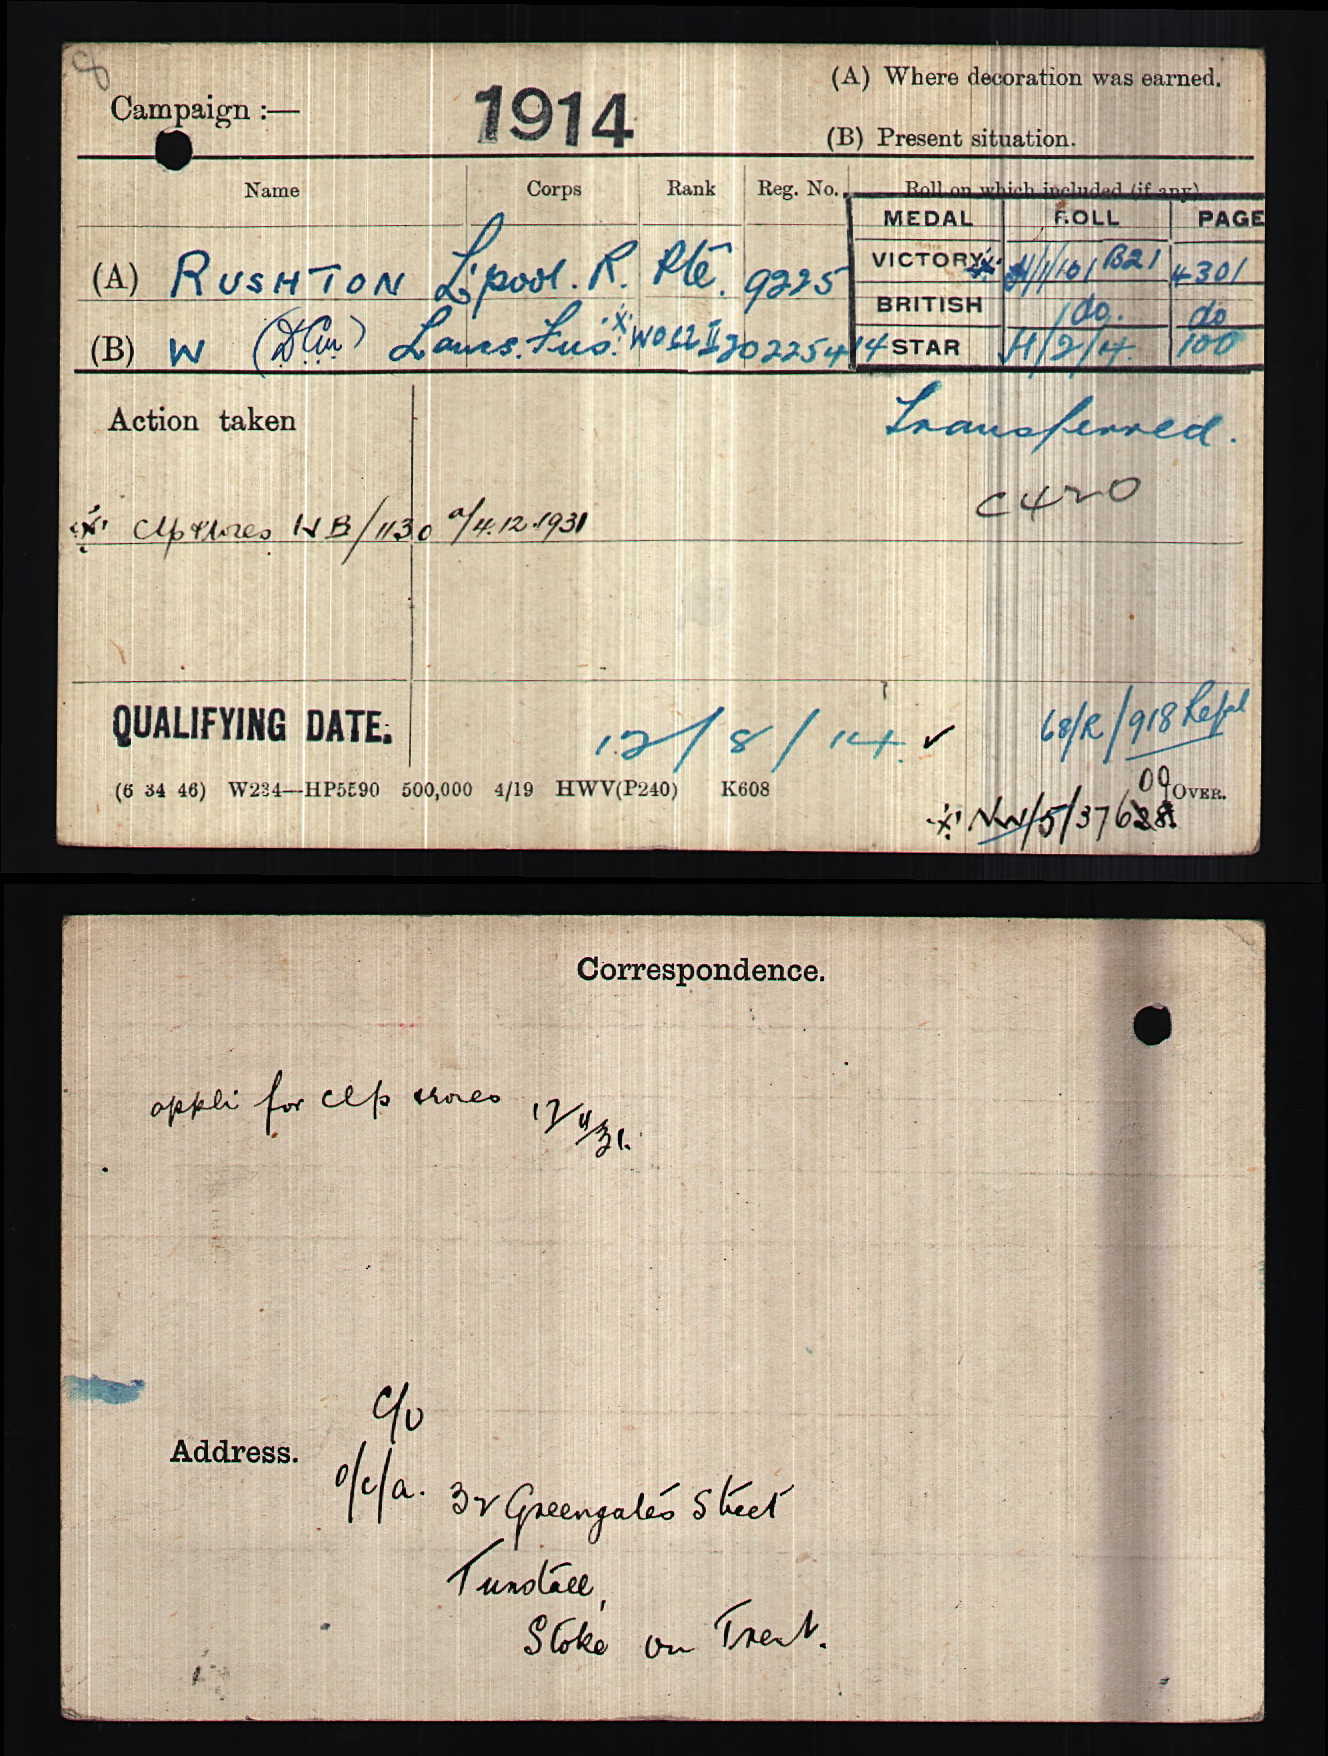 8
Campaign :— 1914 (A) Where decoration was earned.
(B) Present situation.
Name Corps Rank Reg. No. Roll on which included (if any)
MEDAL ROLL PAGE
(A) RUSHTON L'pool. R. Pte. 9225 VICTORY H/1/101 B21 4301
BRITISH do. do
(B) W (DCM) Lancs. Fus. WO Cl II 202254 14 STAR H/2/4 100
Action taken
Transferred.
C420
Clp & roses NB/1130 a/4.12.1931
QUALIFYING DATE. 12/8/14 ✓ 68/R/918
(6 34 46) W234—HP5590 500,000 4/19 HWV(P240) K608
OVER.
NW/5/376
Correspondence.
appli for clp & roses 12/11/31.
C/O
Address.
o/c/a. 32 Greengates Street
Tunstall,
Stoke on Trent.